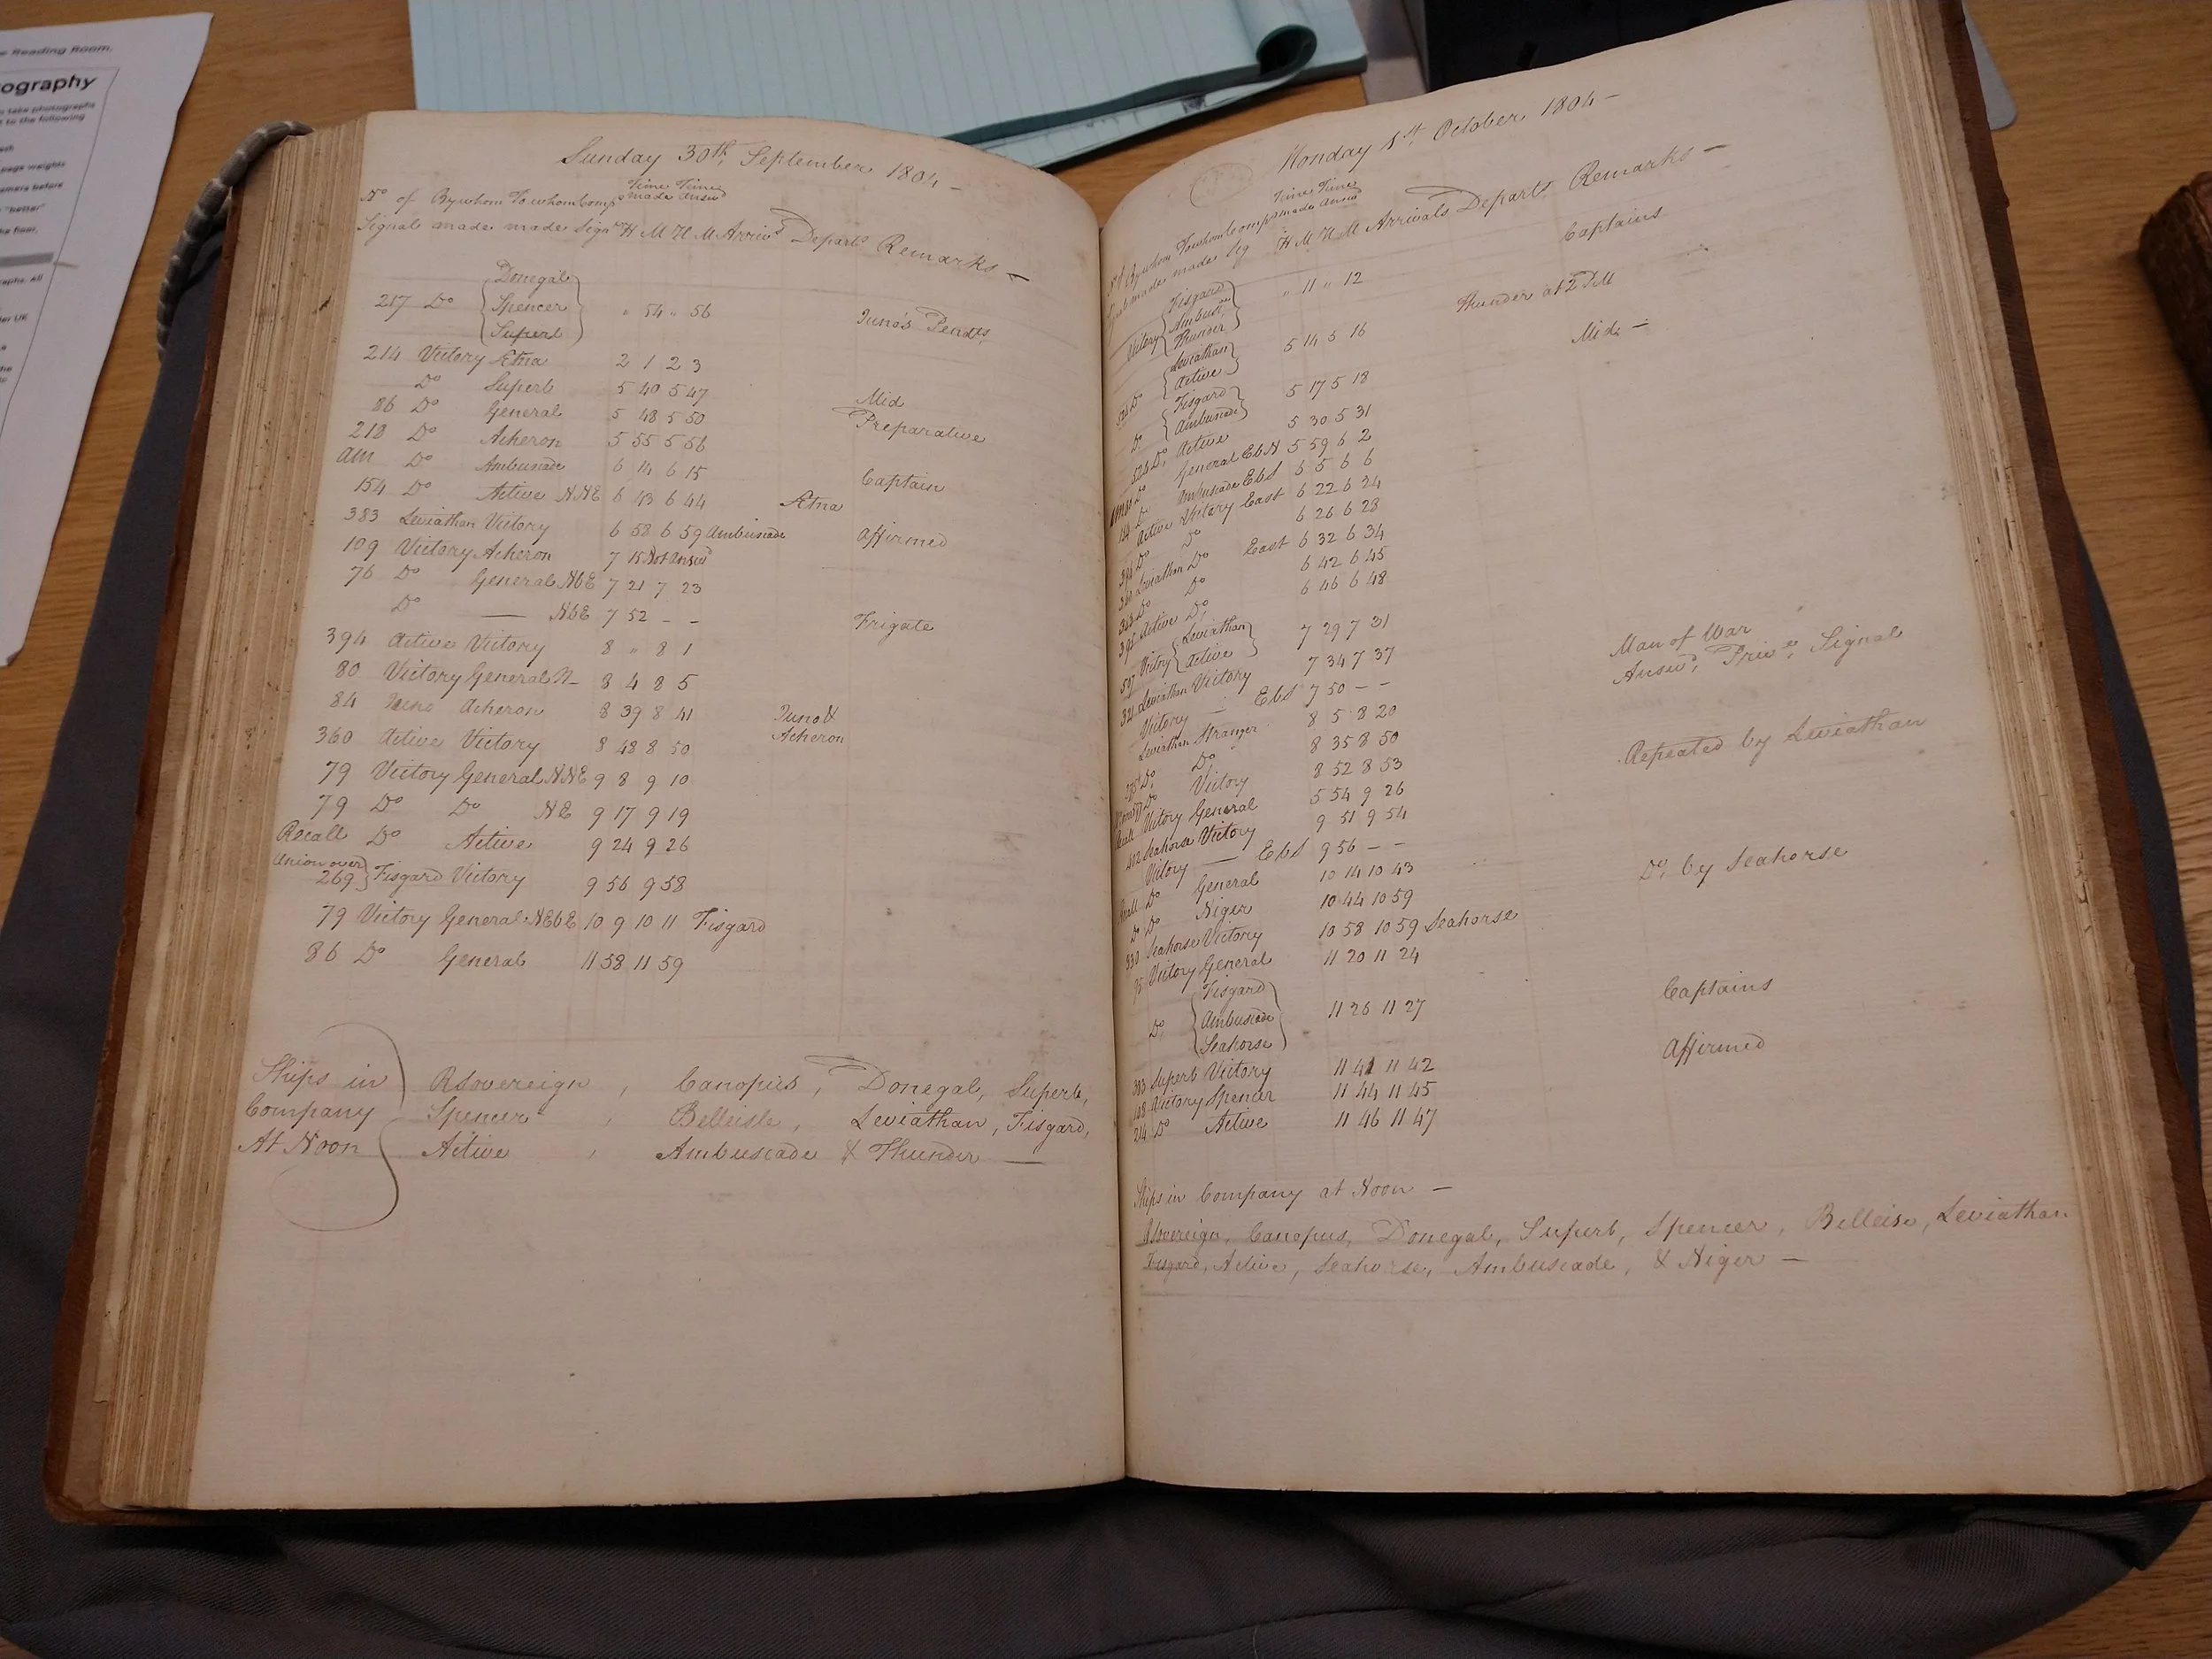 e Reading Room.
ography
to take photographs
to the following
page weights
amera before
"better"
he floor,
raphs. All
der UK
Sunday 30th September 1804 —
No of Bywhom To whom Comps Time made Time Answd
Signal made made Sign H M H M Arrivs Departs Remarks —
Donegal
217 Do Spencer " 54 " 56 Juno's Pendts
Superb
214 Victory Etna 2 1 2 3
Do Superb 5 40 5 47 Mid
86 Do General 5 48 5 50 Preparative
218 Do Acheron 5 55 5 56
AM Do Ambuscade 6 14 6 15 Captain
154 Do Active NNE 6 43 6 44 Etna
383 Leviathan Victory 6 58 6 59 Ambuscade Affirmed
109 Victory Acheron 7 15 Not Answd
76 Do General NbE 7 21 7 23
Do — NbE 7 52 - - Frigate
394 Active Victory 8 " 8 1
80 Victory General N- 8 4 8 5
84 Juno Acheron 8 39 8 41 Juno &
Acheron
360 Active Victory 8 48 8 50
79 Victory General NNE 9 8 9 10
79 Do Do NE 9 17 9 19
Recall Do Active 9 24 9 26
Union over
269 Fisgard Victory 9 56 9 58
79 Victory General NEbE 10 9 10 11 Fisgard
86 Do General 11 58 11 59
Ships in RSovereign, Canopus, Donegal, Superb,
Company Spencer, Belleisle, Leviathan, Fisgard,
At Noon Active, Ambuscade & Thunder —
Monday 1st October 1804 —
Time made Time Answd
made H M H M Arrivals Departs Remarks —
Fisgard
Victory Ambusce " 11 " 12 Captains
Thunder
Leviathan 5 14 5 16 Thunder at 2 PM
Active
Do Fisgard 5 17 5 18 Mid —
Ambuscade
Do Active 5 30 5 31
Do General EbN 5 59 6 2
Do Ambuscade EbS 6 5 6 6
Active Victory East 6 22 6 24
Do Do 6 26 6 28
360 Leviathan Do East 6 32 6 34
Do Do 6 42 6 45
Active Do 6 46 6 48
507 Victory Leviathan 7 29 7 31
Active
321 Leviathan Victory 7 34 7 37 Man of War
Victory — EbS 7 50 - - Answd Prive Signal
Leviathan Stranger 8 5 8 20
Do Do 8 35 8 50
Do Victory 8 52 8 53 Repeated by Leviathan
Recall Victory General 5 54 9 26
402 Seahorse Victory 9 51 9 54
Victory — EbS 9 56 - -
Recall Do General 10 14 10 43 Do by Seahorse
Do Do Niger 10 44 10 59
330 Seahorse Victory 10 58 10 59 Seahorse
Victory General 11 20 11 24
Fisgard
Do Ambuscade 11 26 11 27 Captains
Seahorse
383 Superb Victory 11 41 11 42 Affirmed
108 Victory Spencer 11 44 11 45
214 Do Active 11 46 11 47
Ships in Company at Noon —
RSovereign, Canopus, Donegal, Superb, Spencer, Belleise, Leviathan
Fisgard, Active, Seahorse, Ambuscade, & Niger —